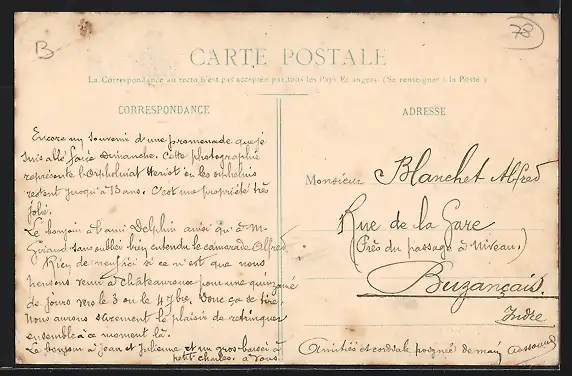 B
78
CARTE POSTALE
La Correspondance au recto n'est pas acceptée par tous les Pays Etrangers. (Se renseigner à la Poste)
CORRESPONDANCE
Encore un souvenir d'une promenade que je
suis allé faire Dimanche. Cette photographie
représente l'Orphelinat Heriot où les orphelins
restent jusqu'à 13 ans. C'est une propriété très
jolie.
Le bonjour à l'ami Delphin ainsi qu'à Mr
Giraud sans oublier bien entendu le camarade Alfred
Rien de neuf ici si ce n'est que nous
pensons venir à Châteauroux pour une quinzaine
de jours vers le 3 ou le 4 7bre. Donc ça se tire.
Nous aurons sûrement le plaisir de
ensemble à ce moment là.
Le bonjour à Jean et Julienne et un gros baiser à
petit Charles. à vous
ADRESSE
Monsieur Blanchet Alfred
Rue de la Gare
(Près du passage à Niveau.)
Buzançais.
Indre
Amitiés et cordiale poignée de main